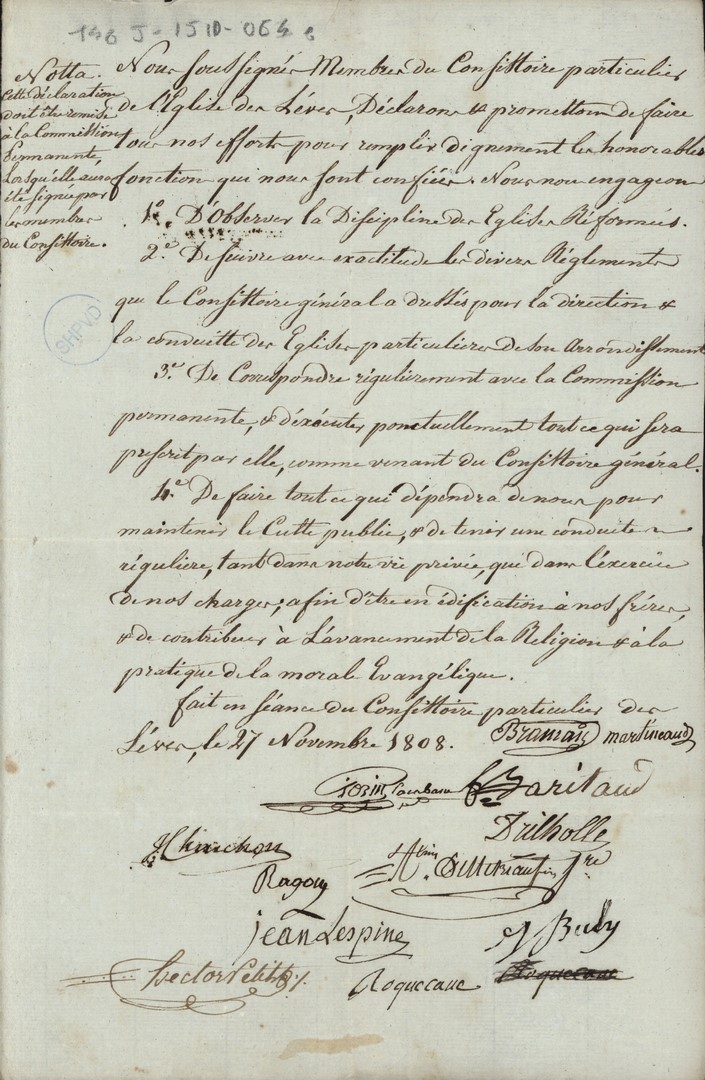 148 J - 15 D - 064
Notta.
Cette déclaration
doit être remise
à la Commission
Permanente,
Lorsqu'elle aura
été signée par
les membres
du Consistoire.
Nous soussignés Membres du Consistoire particulier
de l'Eglise des Lèves, Déclarons & promettons de faire
tous nos efforts pour remplir dignement les honorables
fonction qui nous sont confiées. Nous nous engageons
1.° D'Observer la Discipline des Eglises Réformées.
2.° De suivre avec exactitude les divers Réglements
que le Consistoire général a dressés pour la direction &
la conduitte des Eglises particulieres de son Arrondissement
3.° De Correspondre régulièrement avec la Commission
permanente, & d'éxécuter ponctuellement tout ce qui sera
prescrit par elle, comme venant du Consistoire général.
4.° De faire tout ce qui dépendra de nous pour
maintenir le Culte public, & de tenir une conduite
régulière, tant dans notre vie privée, que dans l'éxercice
de nos charges; afin d'être en édification à nos frères,
& de contribuer à L'avancement de la Religion & à la
pratique de la morale Evangélique.
fait en séance du Consistoire particulier des
Lèves, le 27 Novembre 1808.
martineaud
Baritaud
Drilholle
Jre
Ragou
jean Lespine
hector Petit
Roquecave
Roquecave
SHPVD